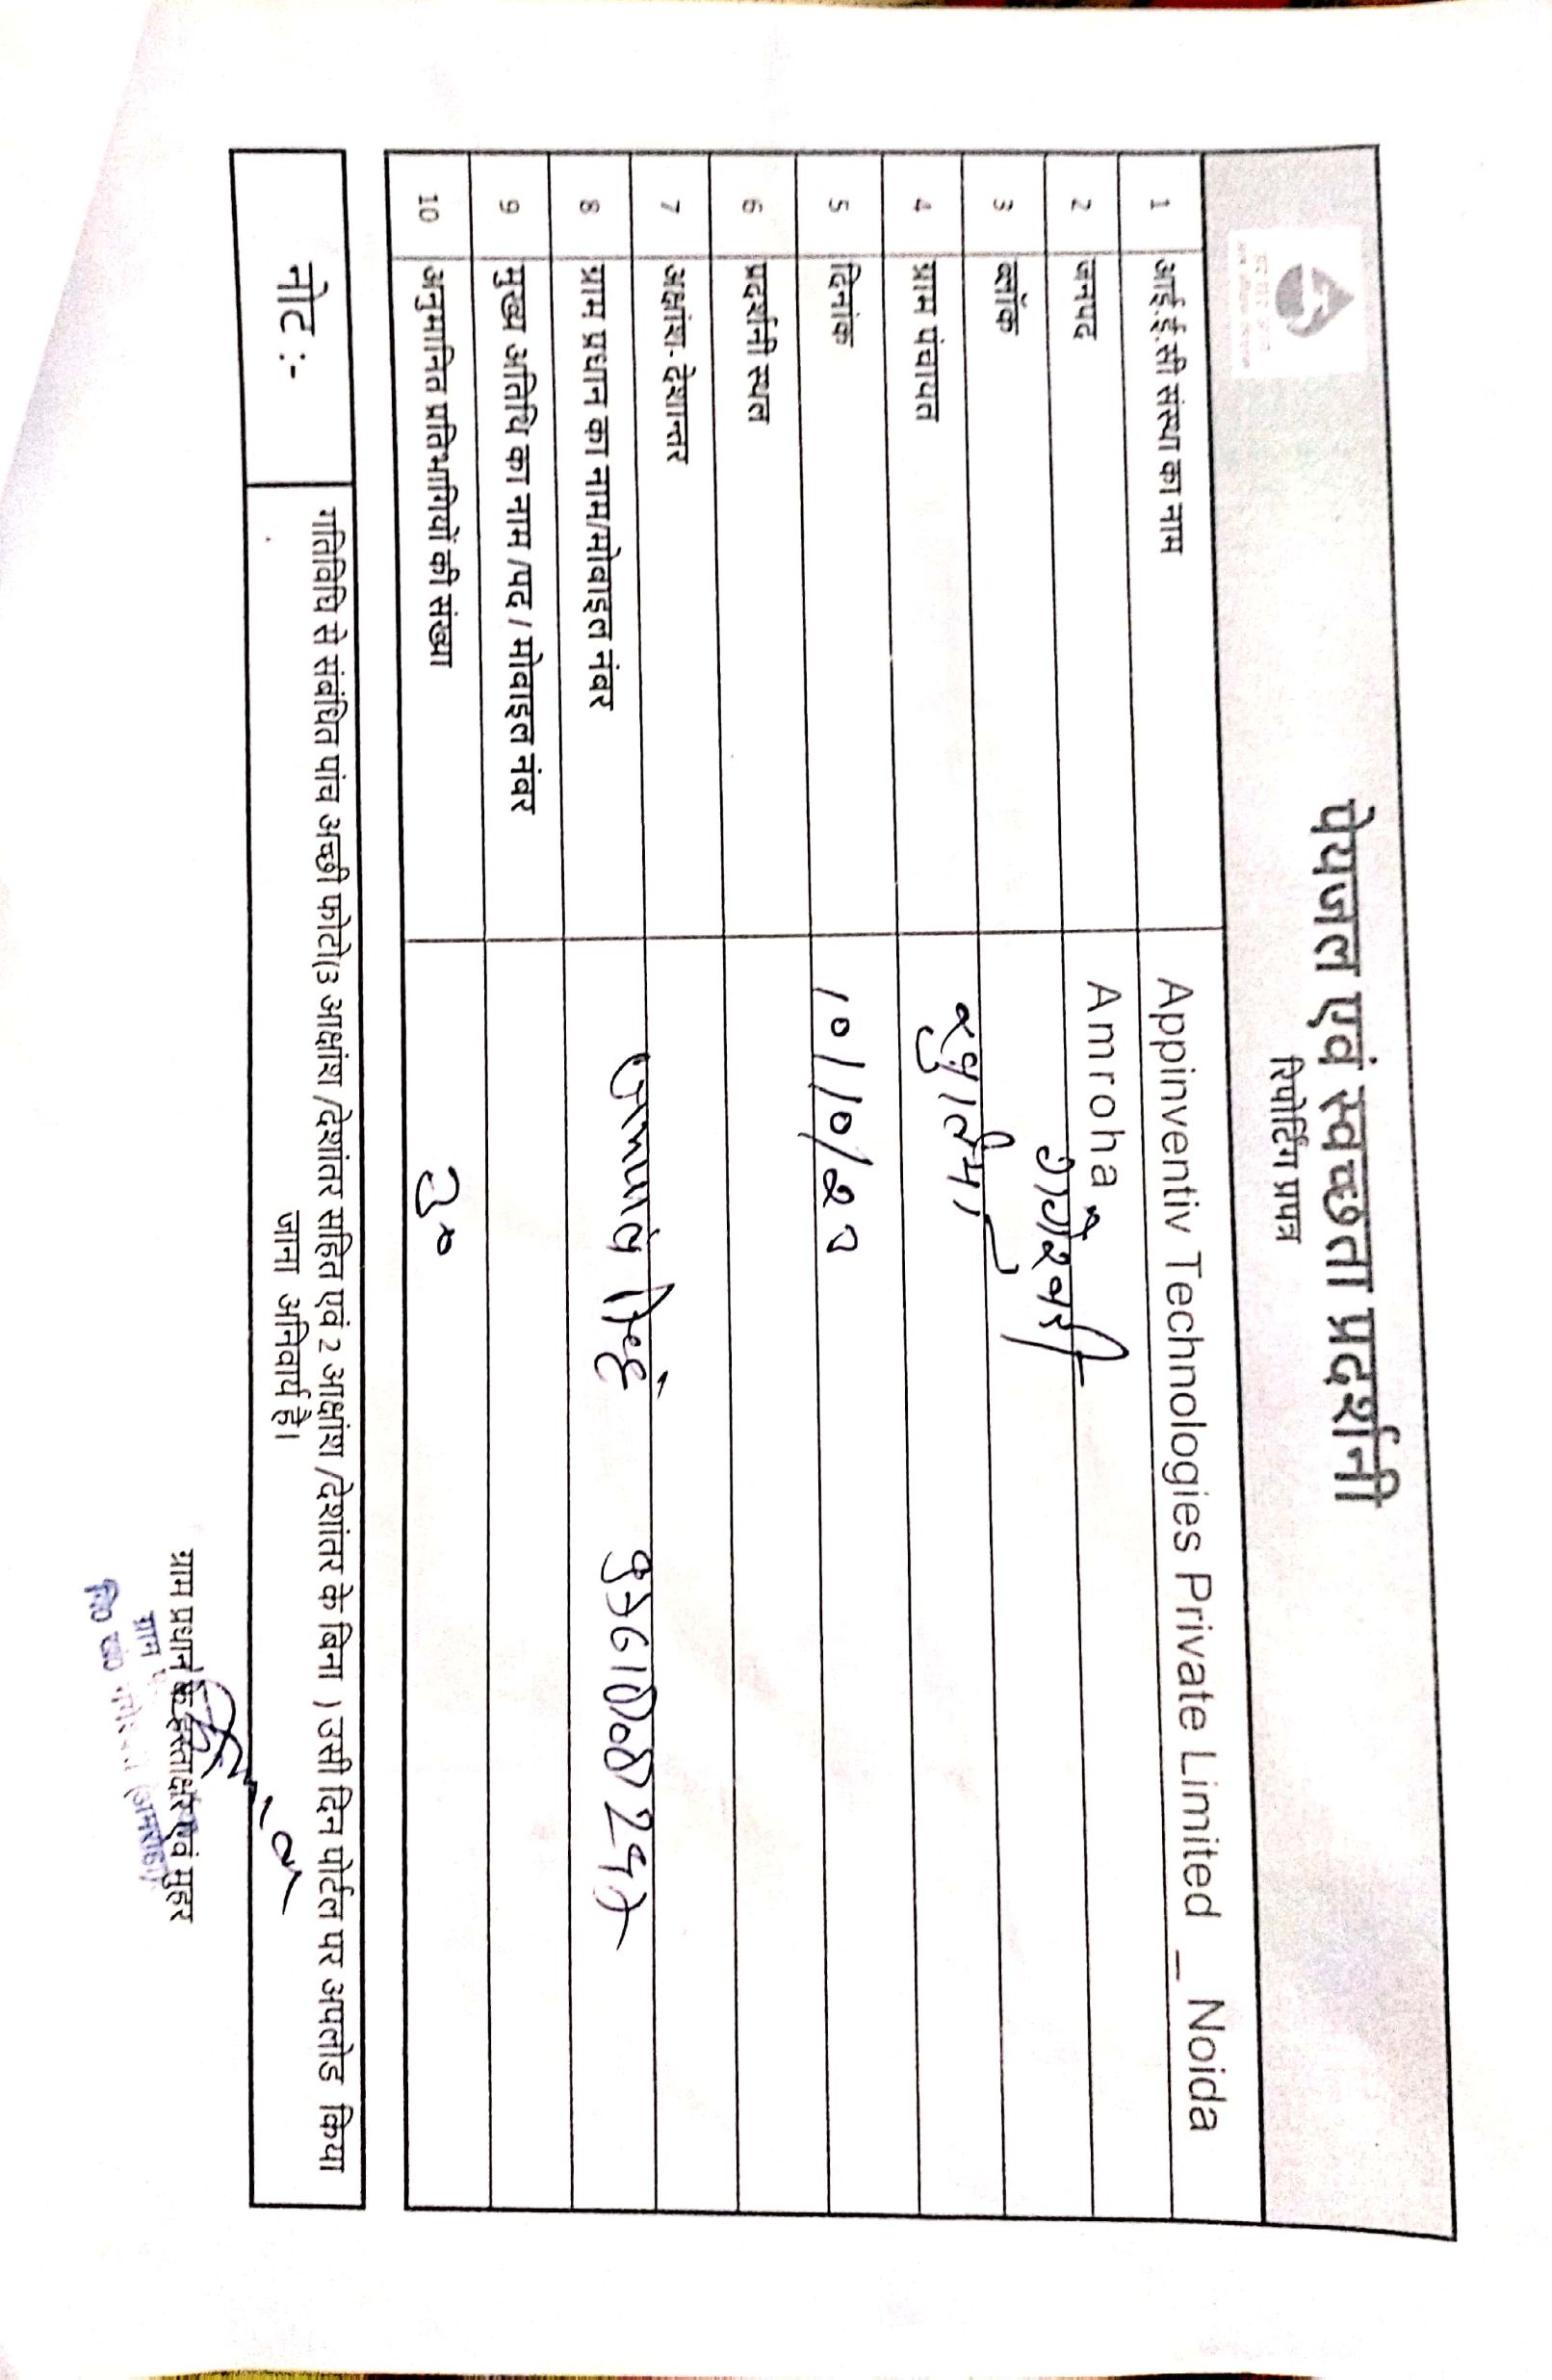 पेयजल एवं स्वच्छता प्रदर्शनी
रिपोर्टिंग प्रपत्र
1 आई.ई.सी संस्था का नाम Appinventiv Technologies Private Limited _ Noida
2 जनपद Amroha
3 ब्लॉक गंगेश्वरी
4 ग्राम पंचायत
5 दिनांक 10/10/23
6 प्रदर्शनी स्थल
7 अक्षांश-देशान्तर
8 ग्राम प्रधान का नाम/मोबाइल नंबर सिंह
9 मुख्य अतिथि का नाम /पद / मोबाइल नंबर
10 अनुमानित प्रतिभागियों की संख्या 30
नोट :-
गतिविधि से संबंधित पांच अच्छी फोटो(3 आक्षांश /देशांतर सहित एवं 2 आक्षांश /देशांतर के बिना ) उसी दिन पोर्टल पर अपलोड किया
जाना अनिवार्य है।
ग्राम प्रधान के हस्ताक्षर एवं मुहर
ग्राम
वि0 खं0 (अमरोहा)